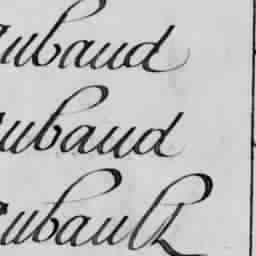 ubaud
ubaud
ubault